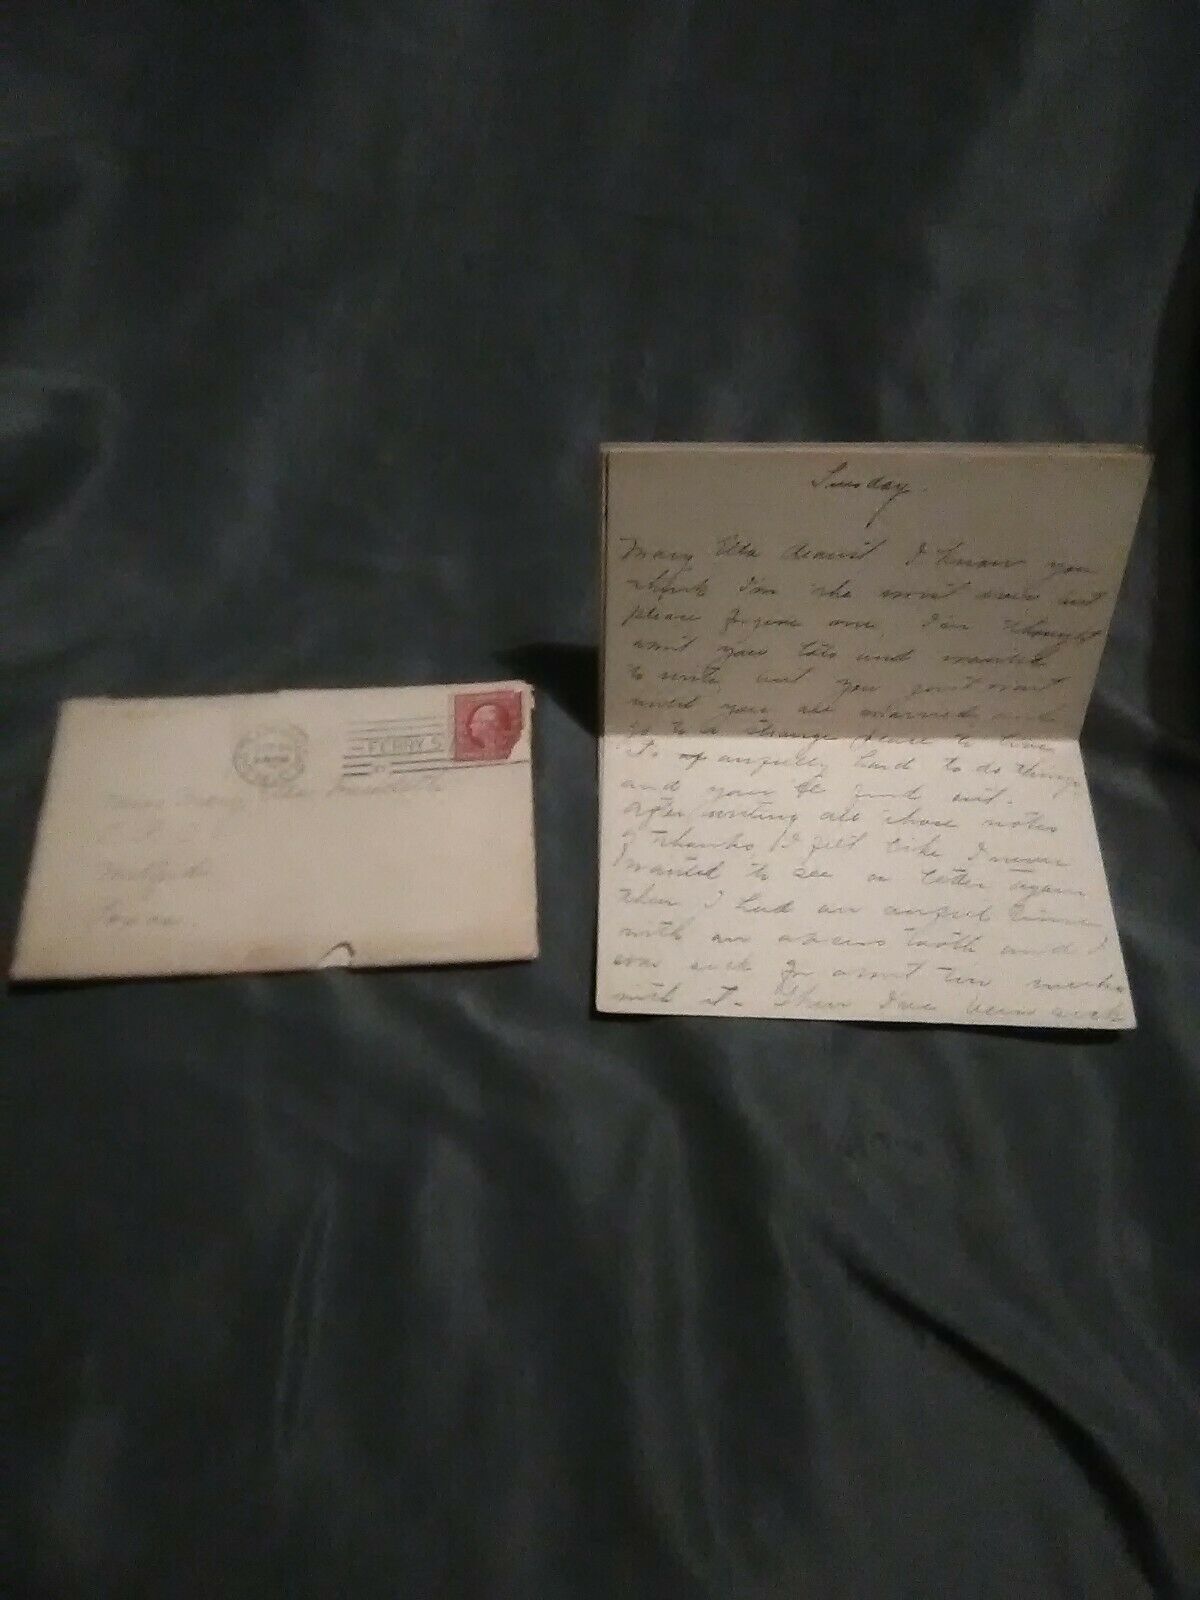 FERRYS
Mary
Iowa
Sunday.
Mary Etta dearest I know you
think I'm the worst ever but
please forgive me, I've thought
about you lots and wanted
to write, but you just wait
until you are married and
go to a strange place to live.
It's awfully hard to do things
and you'll find out.
After writing all those notes
of thanks, I felt like I never
wanted to see a letter again
Then I had an awful time
with an abcess tooth and I
was sick for about two weeks
with it. Then I've been sick